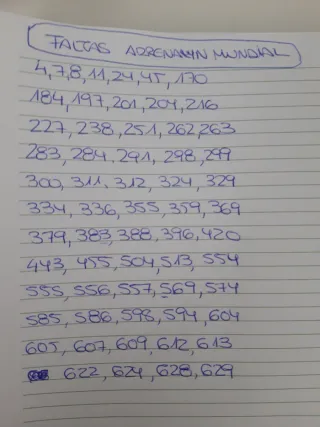 FALTAS ADRENALYN MUNDIAL
4,7,8,11,24,45,170
184,197,201,204,216
227, 238,251,262,263
283, 284, 291, 298, 299
300, 311, 312, 324, 329
334, 336, 355, 359, 369
379, 383, 388, 396, 420
443, 455, 504, 513, 554
555, 556, 557, 569, 574
585, 586, 593, 594, 604
605, 607, 609, 612, 613
622, 624, 628, 629